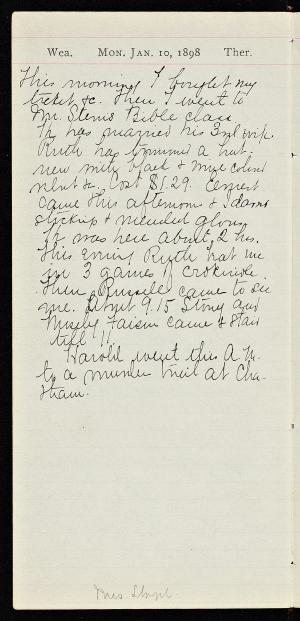 Wea. Mon. Jan. 10, 1898 Ther.
This morning I bought my
ticket &c. Then I went to
Mr. Bible class.
He has married his 3rd wife.
Ruth has trimmed a hat.
new milk black &
velvet &c. Cost $1.29.
came this afternoon &
stockings & mended gloves
He was here about 2 hrs.
This evening Ruth beat me
in 3 games of crokinole.
Then Russell came to see
me. About 9.15 Stony and
Faison came & staid
till 11.
Harold went this A.M.
to a murder trial at Cha-
tham.